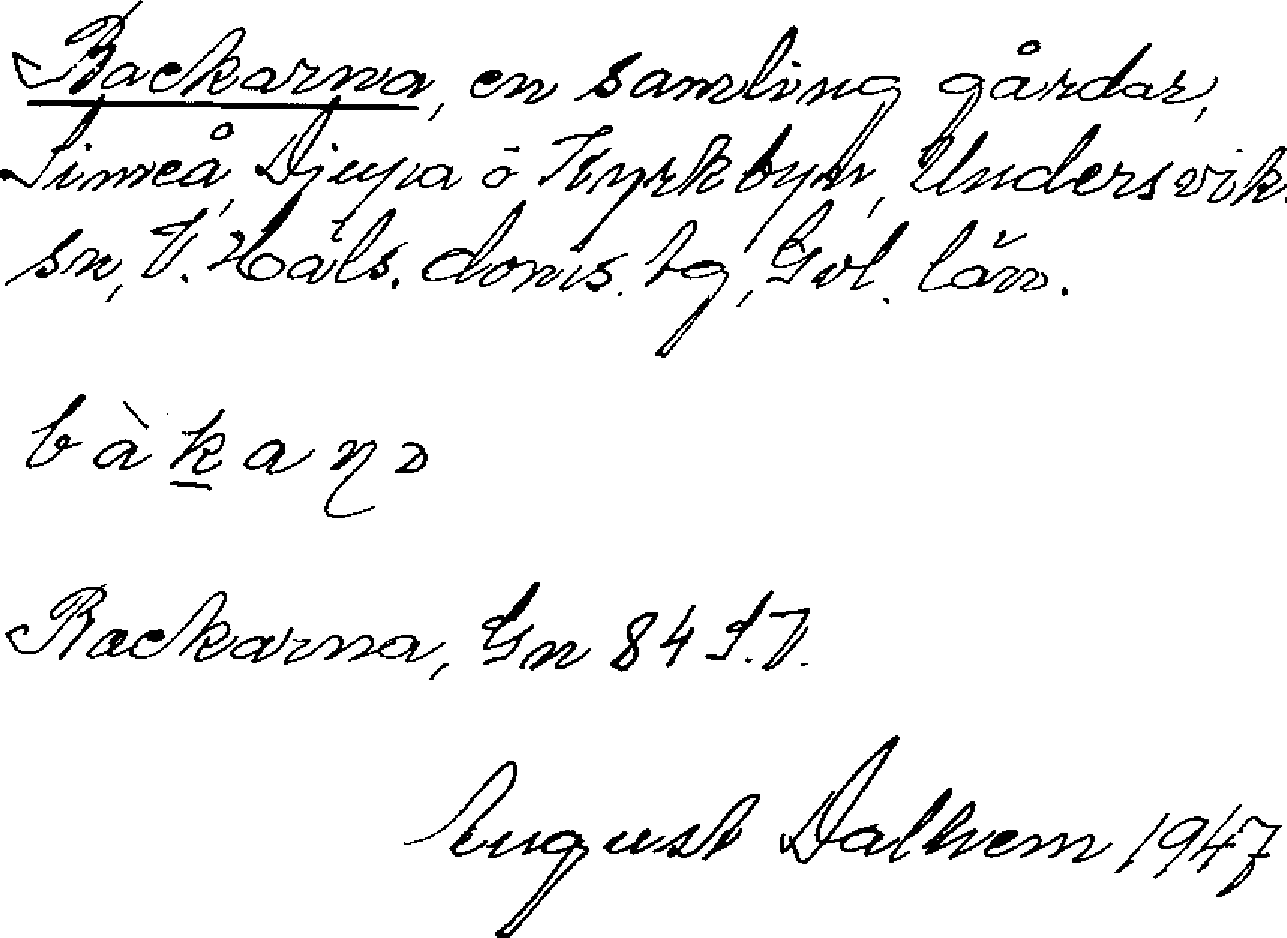 Backarna, en samling gårdar,
Simeå, Djupa o Kyrkbyn, Undersvik
sn, V. Häls. doms. lg, Gvl. län.
bàkaṇɔ
Backarna, Gn 84 S.V.
August Dalhem 1947